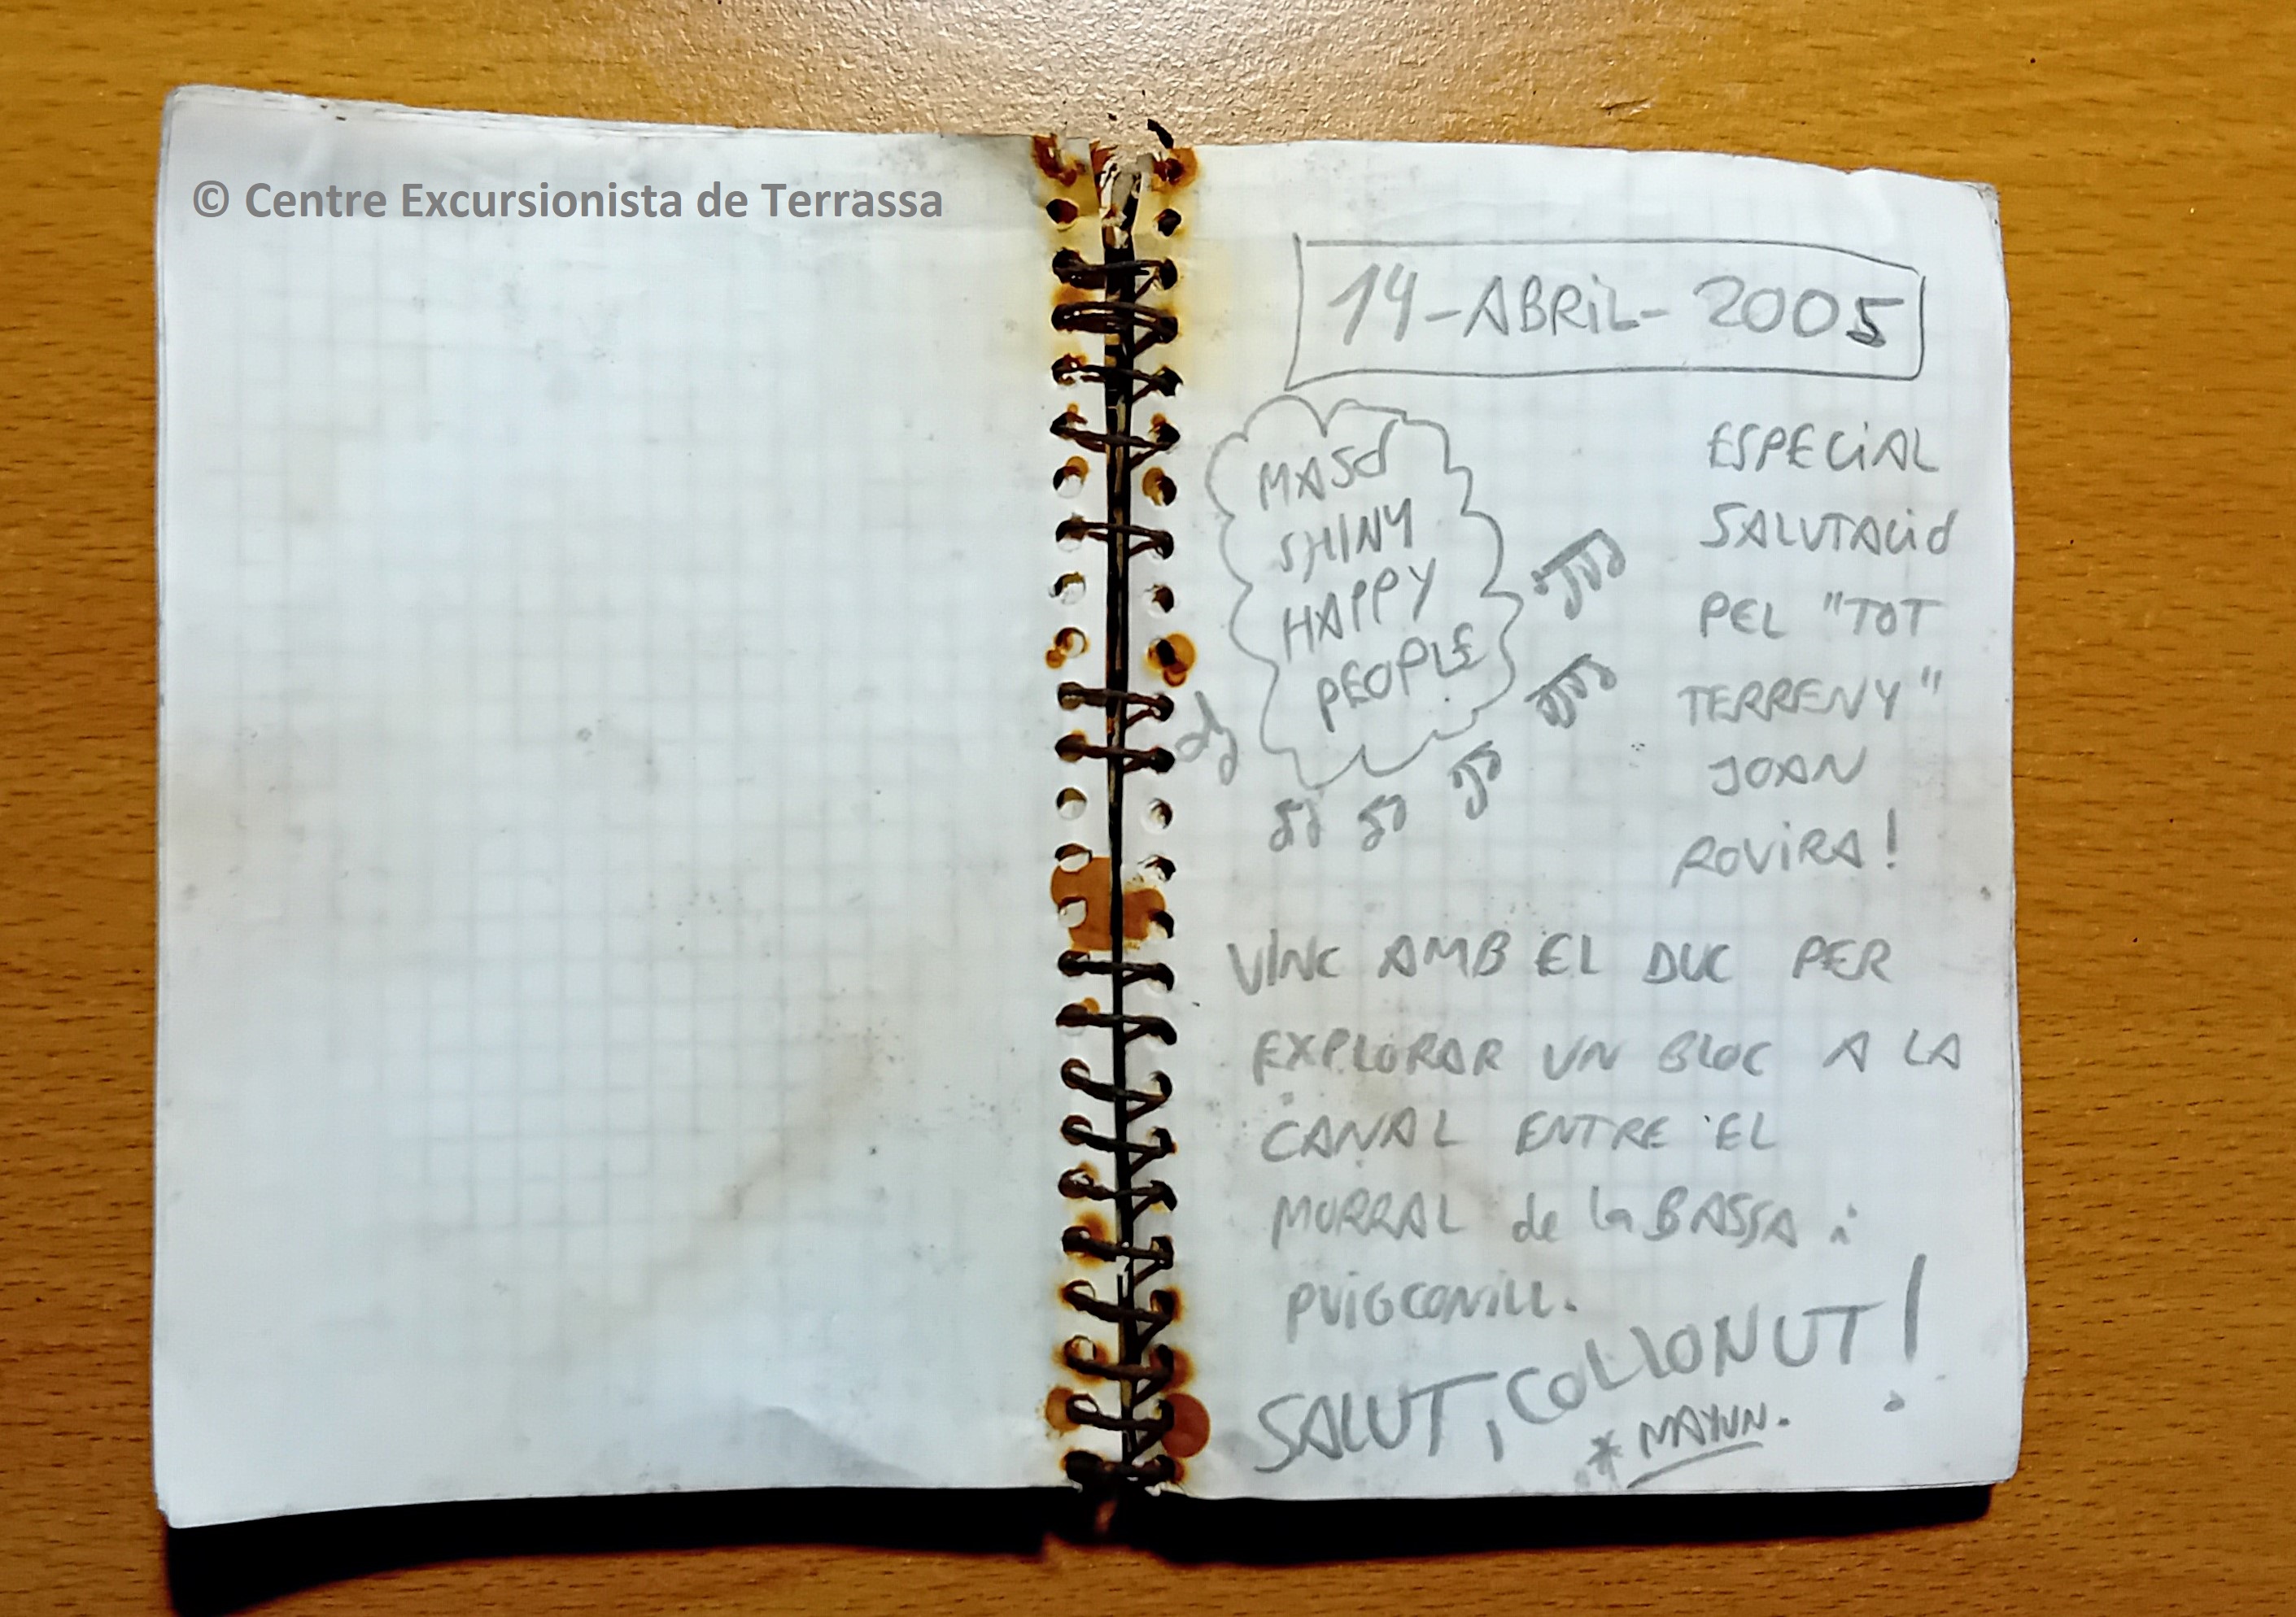 © Centre Excursionista de Terrassa
14-ABRIL-2005
MASO
SHINY
HAPPY
PEOPLE
ESPECIAL
SALUTACIÓ
PEL "TOT
TERRENY"
JOAN
ROVIRA!
VINC AMB EL DUC PER
EXPLORAR UN BLOC A LA
CANAL ENTRE EL
MORRAL de la BASSA i
PUIGCONILL.
SALUT, COLLONUT!
* MAYUN.